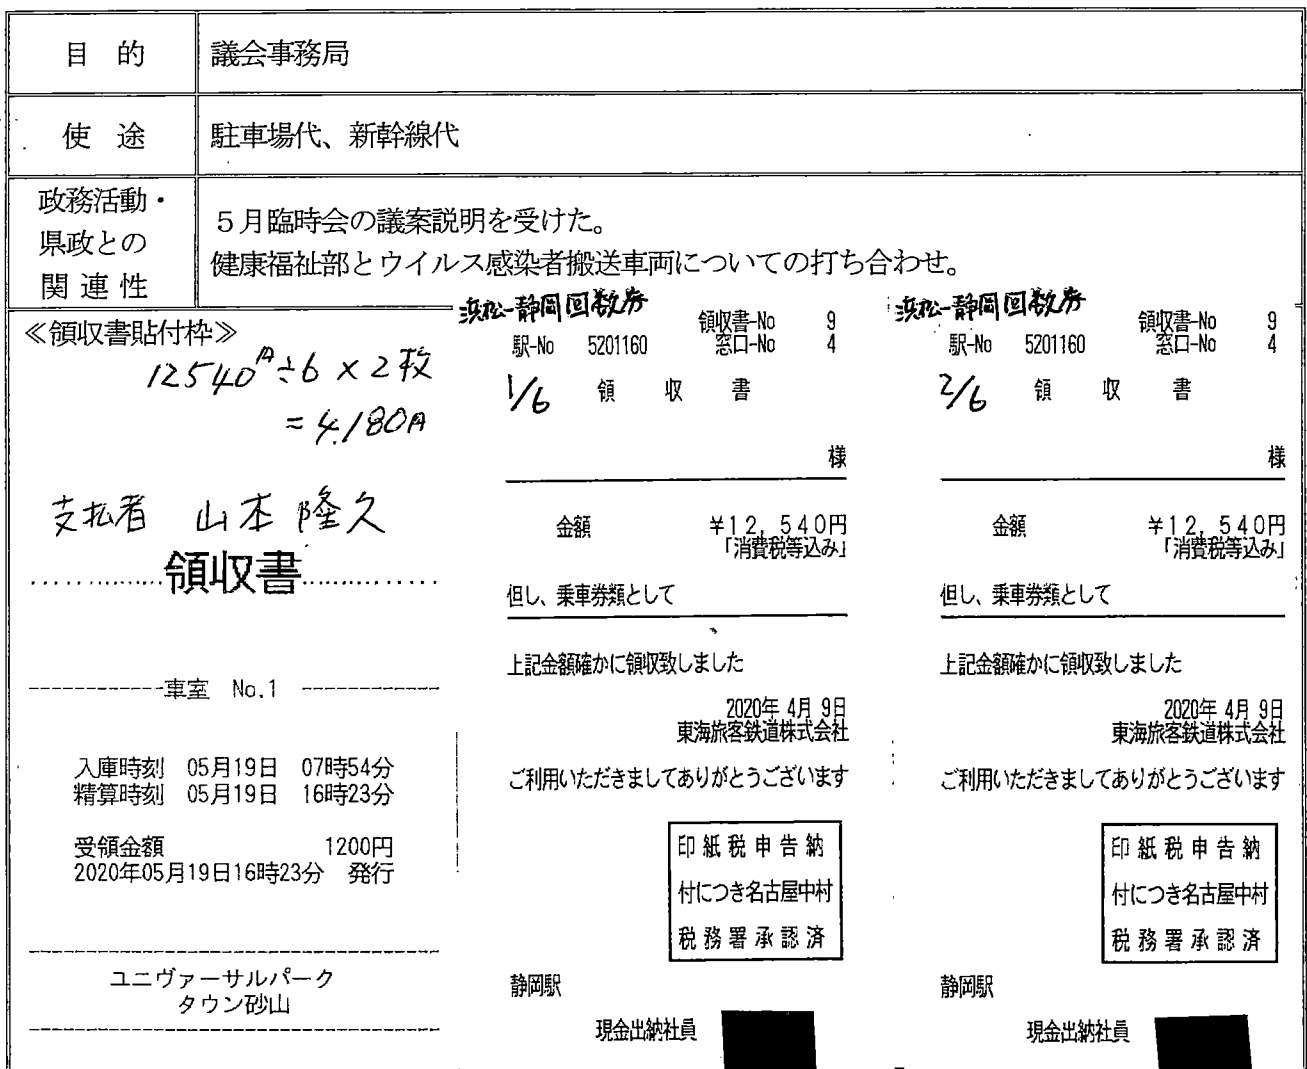 目 的
議会事務局
使 途
駐車場代、新幹線代
政務活動・
県政との
関 連 性
５月臨時会の議案説明を受けた。
健康福祉部とウイルス感染者搬送車両についての打ち合わせ。
≪領収書貼付枠≫
12540円÷6×2枚
=4,180円
支払者 山本隆久
領収書
車室 No.1
入庫時刻 05月19日 07時54分
精算時刻 05月19日 16時23分
受領金額 1200円
2020年05月19日16時23分 発行
ユニヴァーサルパーク
タウン砂山
浜松-静岡回数券
領収書-No 9
駅-No 5201160 窓口-No 4
1/6 領 収 書
様
金額 ¥12,540円
「消費税等込み」
但し、乗車券類として
上記金額確かに領収致しました
2020年 4月 9日
東海旅客鉄道株式会社
ご利用いただきましてありがとうございます
印紙税申告納
付につき名古屋中村
税務署承認済
静岡駅
現金出納社員
浜松-静岡回数券
領収書-No 9
駅-No 5201160 窓口-No 4
2/6 領 収 書
様
金額 ¥12,540円
「消費税等込み」
但し、乗車券類として
上記金額確かに領収致しました
2020年 4月 9日
東海旅客鉄道株式会社
ご利用いただきましてありがとうございます
印紙税申告納
付につき名古屋中村
税務署承認済
静岡駅
現金出納社員